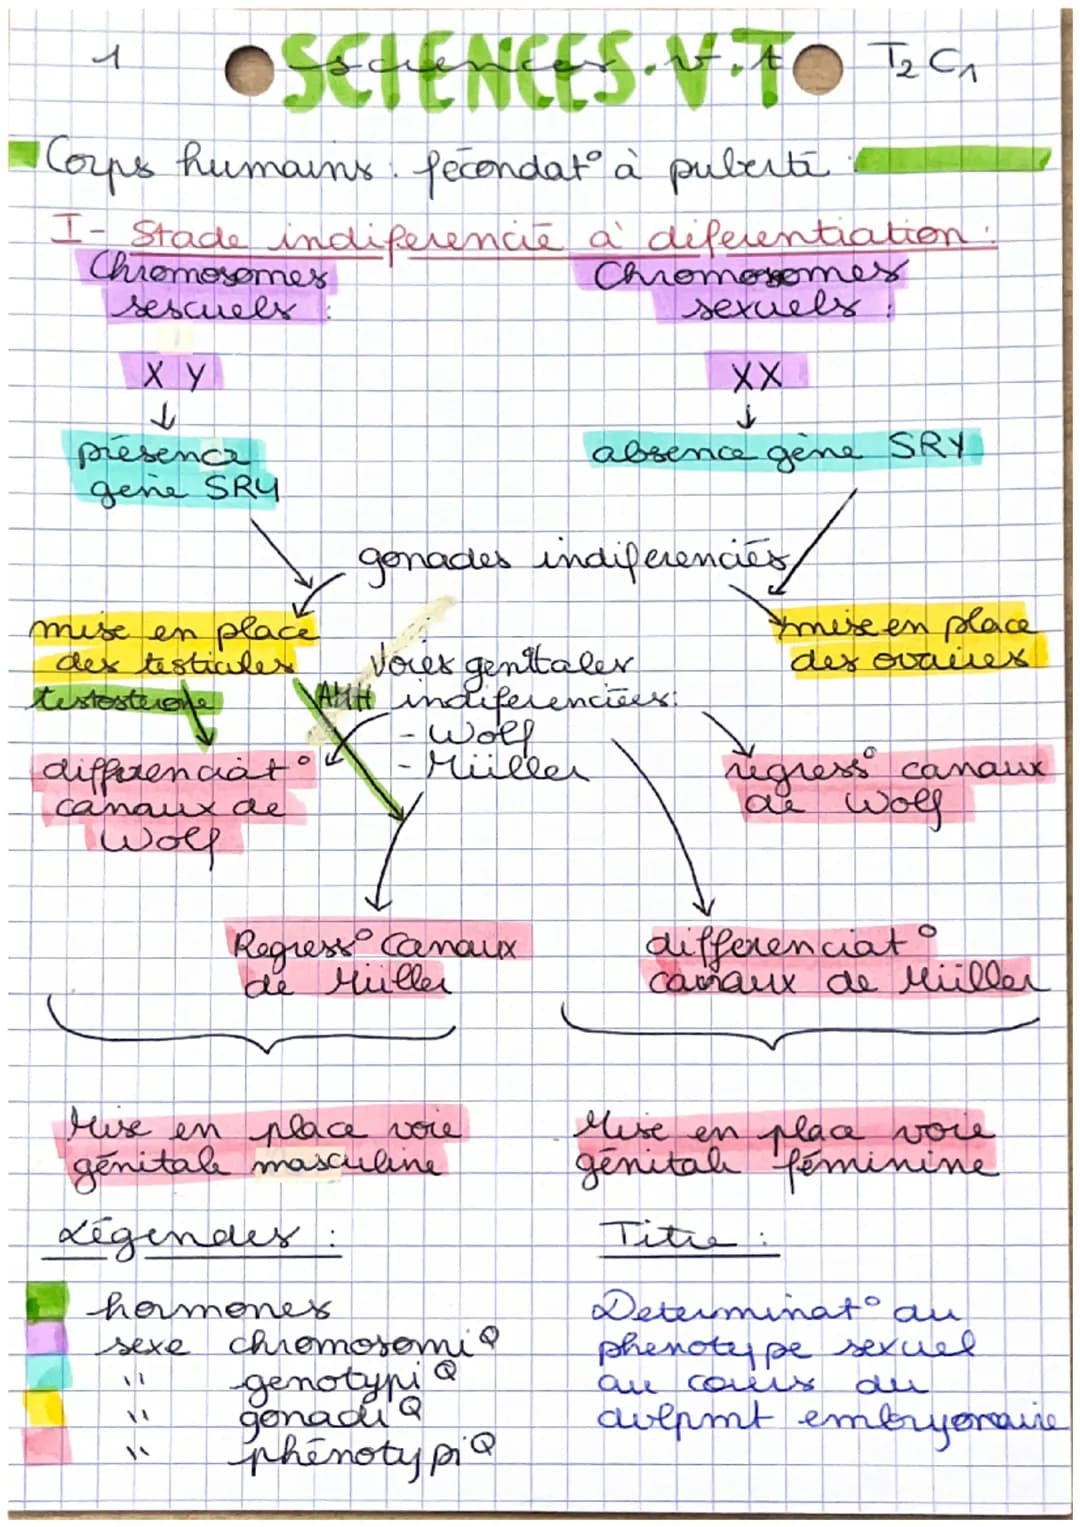 1 SCIENCES.V.T T2 C1
sciences.v.t
Corps humains : fécondat° à puberté :
I- Stade indiferencié à diferentiation :
Chromosomes
sescuels :
X Y
présence
gene SRY
Chromosomes
sexuels :
XX
absence gène SRY
gonades indiferenciés
mise en place
des testicules
testosterone
AMH
Voies genitales
indiferenciées:
- Wolf
- Müller
mise en place
des ovaires
differenciat°
canaux de
Wolf
regress° canaux
de Wolf
Regress° Canaux
de Müller
differenciat°
canaux de Müller
Mise en place voie
génitale masculine
Mise en place voie
génitale féminine
Légendes :
hormones
sexe chromosomiQ
" genotypiQ
" gonadiQ
" phénotypiQ
Titre :
Determinat° du
phenotype sexuel
au cours du
dvlpmt embryonaire